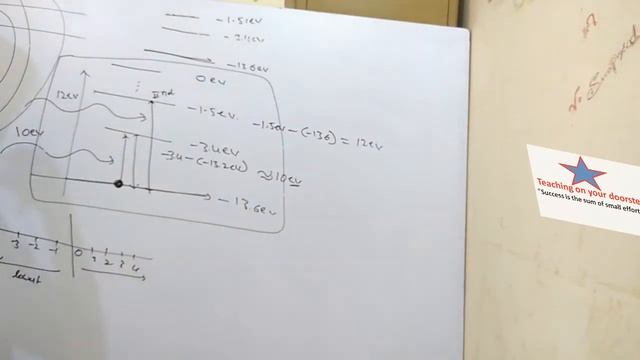 -1.51ev
-3.4ev
-13.6ev
0ev
12ev
IInd
-1.5ev. -1.5ev-(-136) = 12ev
10ev
-3.4ev
-34-(-13.2ev) ≈10ev
-13.6ev
3 -2 -1 0 1 2 3 4
Teaching on your doorste
"Success is the sum of small effort